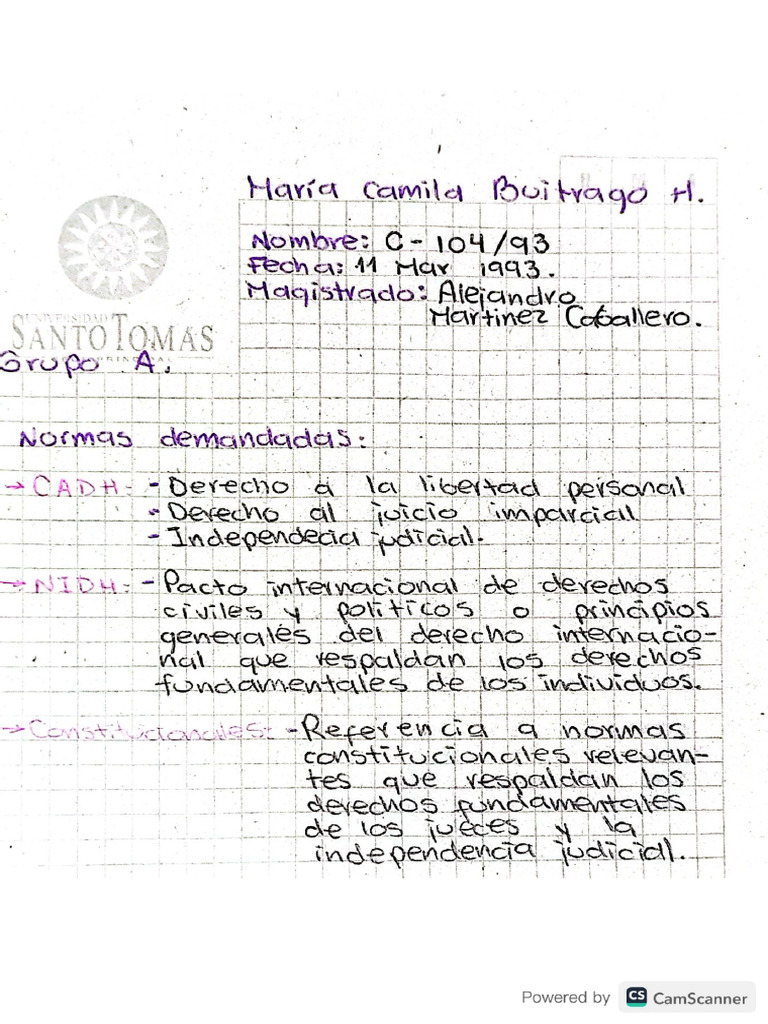 María Camila Buitrago H.
Nombre: C - 104/93
Fecha: 11 Mar 1993.
Magistrado: Alejandro
Martinez Caballero.
UNIVERSIDAD
SANTO TOMAS
Grupo A.
Normas demandadas:
→ CADH: - Derecho a la libertad personal
- Derecho al juicio imparcial
- Independecia judicial.
→ NIDH: - Pacto internacional de derechos
civiles y politicos o principios
generales del derecho internacio-
nal que respaldan los derechos
fundamentales de los individuos.
→ Constitucionales: - Referencia a normas
constitucionales relevan-
tes que respaldan los
derechos fundamentales
de los jueces y la
independencia judicial.
Powered by CS CamScanner